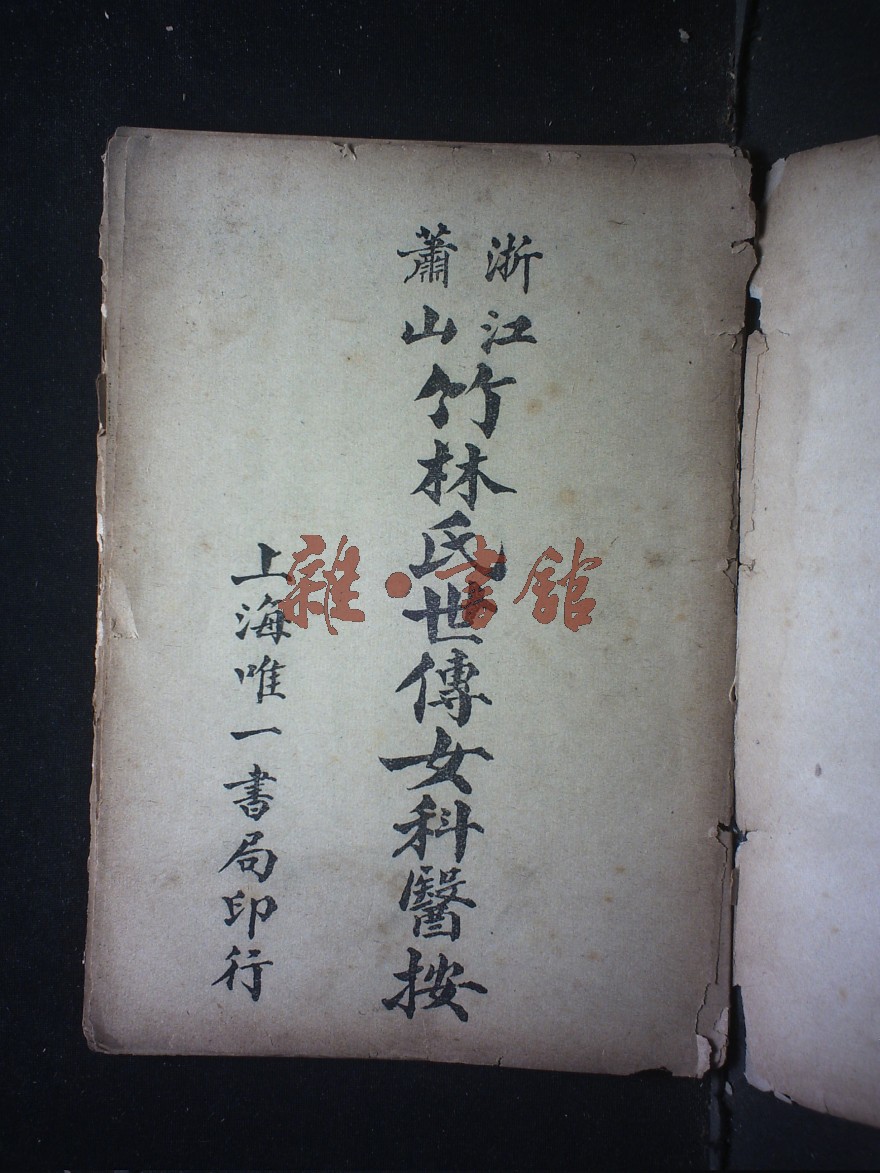 浙江
蕭山
竹林氏世傳女科醫按
上海唯一書局印行
雜·書館